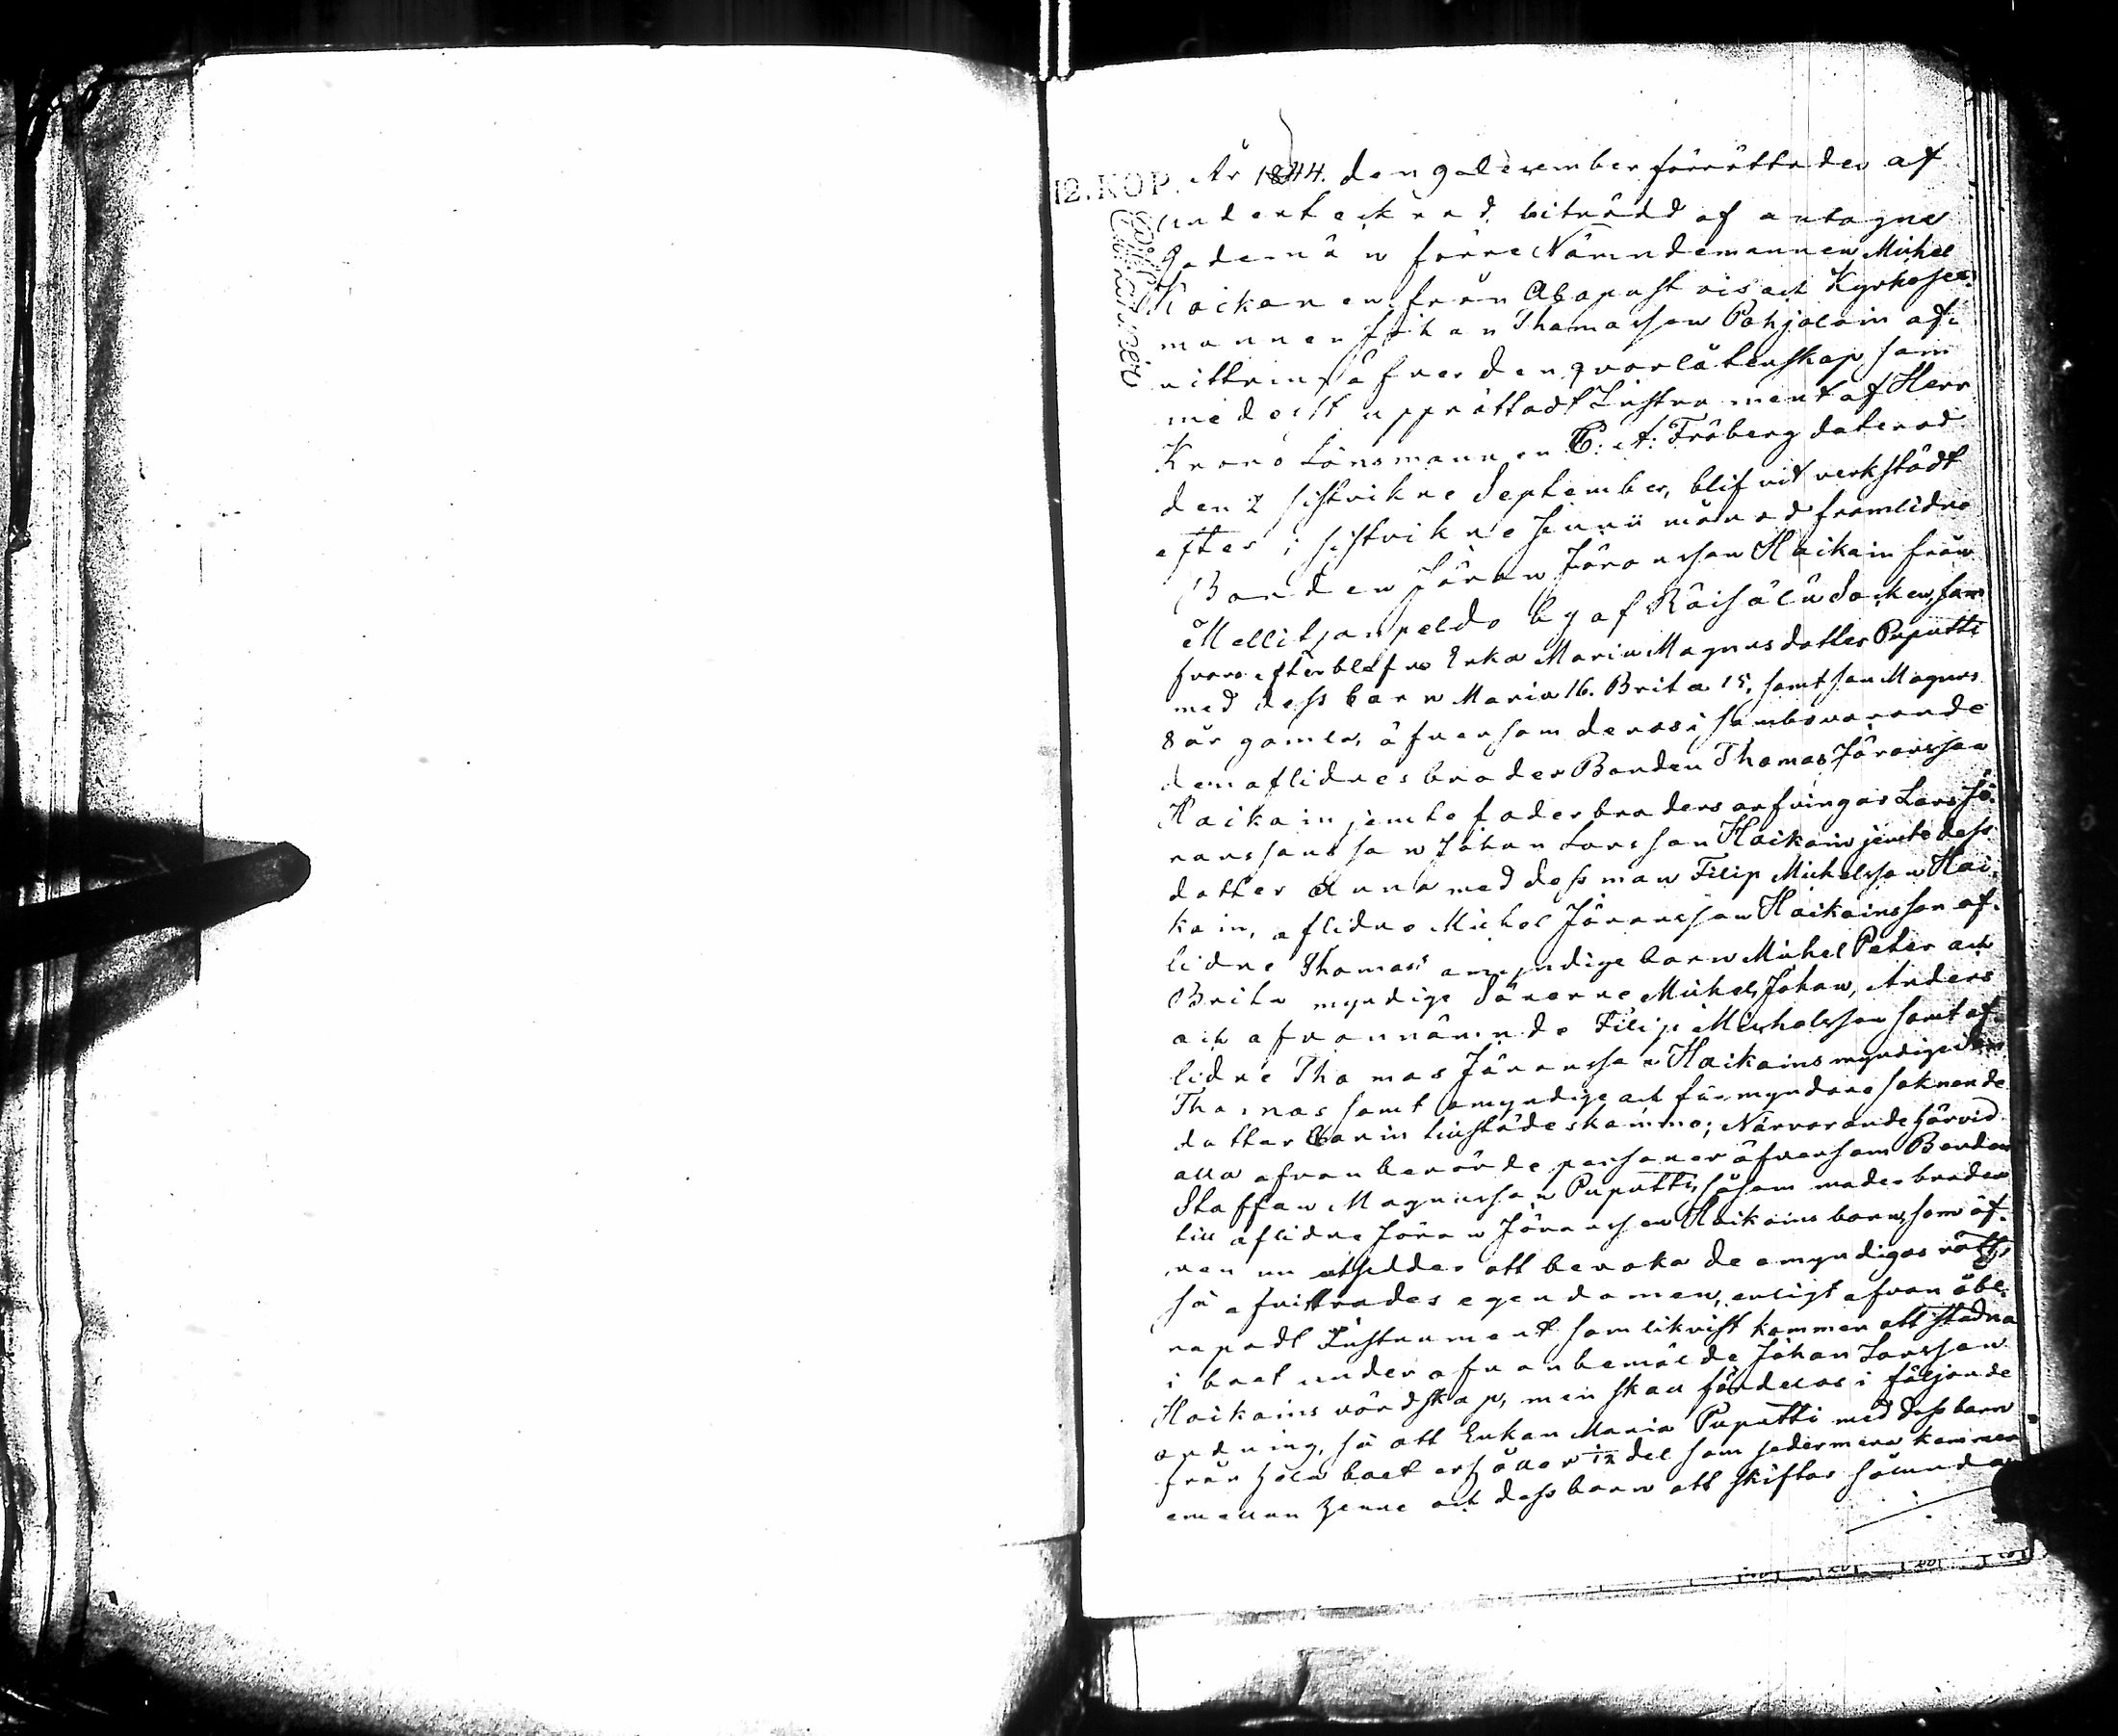 12. KOP. År 1844. den 9 december förrättades af
undertecknad, biträdd af antagne
Godemän förre Nämndemannen Michel
Kaikanen från Abapusto och Kyrkosex-
mannen Johan Thomasson Pohjolain af-
vittring öfver den qvarlåtenskap som
medelst upprättadt Instrument af Herr
Krono Länsmannen C: A: Fröberg daterad
den 2 sistvikne September, blifvit verkstädt
efter i sistvikne Junii månad framlidne
Bonden Jöran Jöransson Haikain från
Mellitjanpeldo by af Räisälä Socken, som
svaro efterblefne Enka Maria Magnusdotter Puputti
med dess barn Maria 16. Brita 15, samt son Magnus
8 år gamla, äfvensom deras i sambo varande
dem aflidnes broder Bonden Thomas Jöransson
Haikain jemte faderbroders arfvingar Lars Jö-
ranssons son Johan Larsson Haikain jemte dess
dotter Anna med dess man Filip Michelsson Hai-
kain, aflidne Michel Jöransson Haikains son af-
lidne Thomas' omyndige barn Michel Peter och
Brita myndige Sönerne Michel, Johan, Anders
och ofvannämnde Filip Michelsson samt af-
lidne Thomas Jöransson Haikains myndige Son
Thomas samt omyndige och förmyndare saknande
dotter Carin tillstädeskommo; Närvarande härvid
alla ofvanberörde personer äfvensom Bonden
Staffan Magnusson Puputti, såsom moderbroder
till aflidne Jöran Jöransson Haikains barn, som äf-
ven nu utseddes att bevaka de omyndigas rätt,
så afvittrades egendomen, enligt ofvan åbe-
ropadt Instrument som likvist kommer att stadna
i boet under ofvanbemälde Johan Larsson
Haikains vårdskap, men skall fördelas i följande
ordning, så att Enkan Maria Puputti med dess barn
från hela boet erhåller 1/12 del som sedermera kommer
emellan henne och dess barn att skiftas sålunda